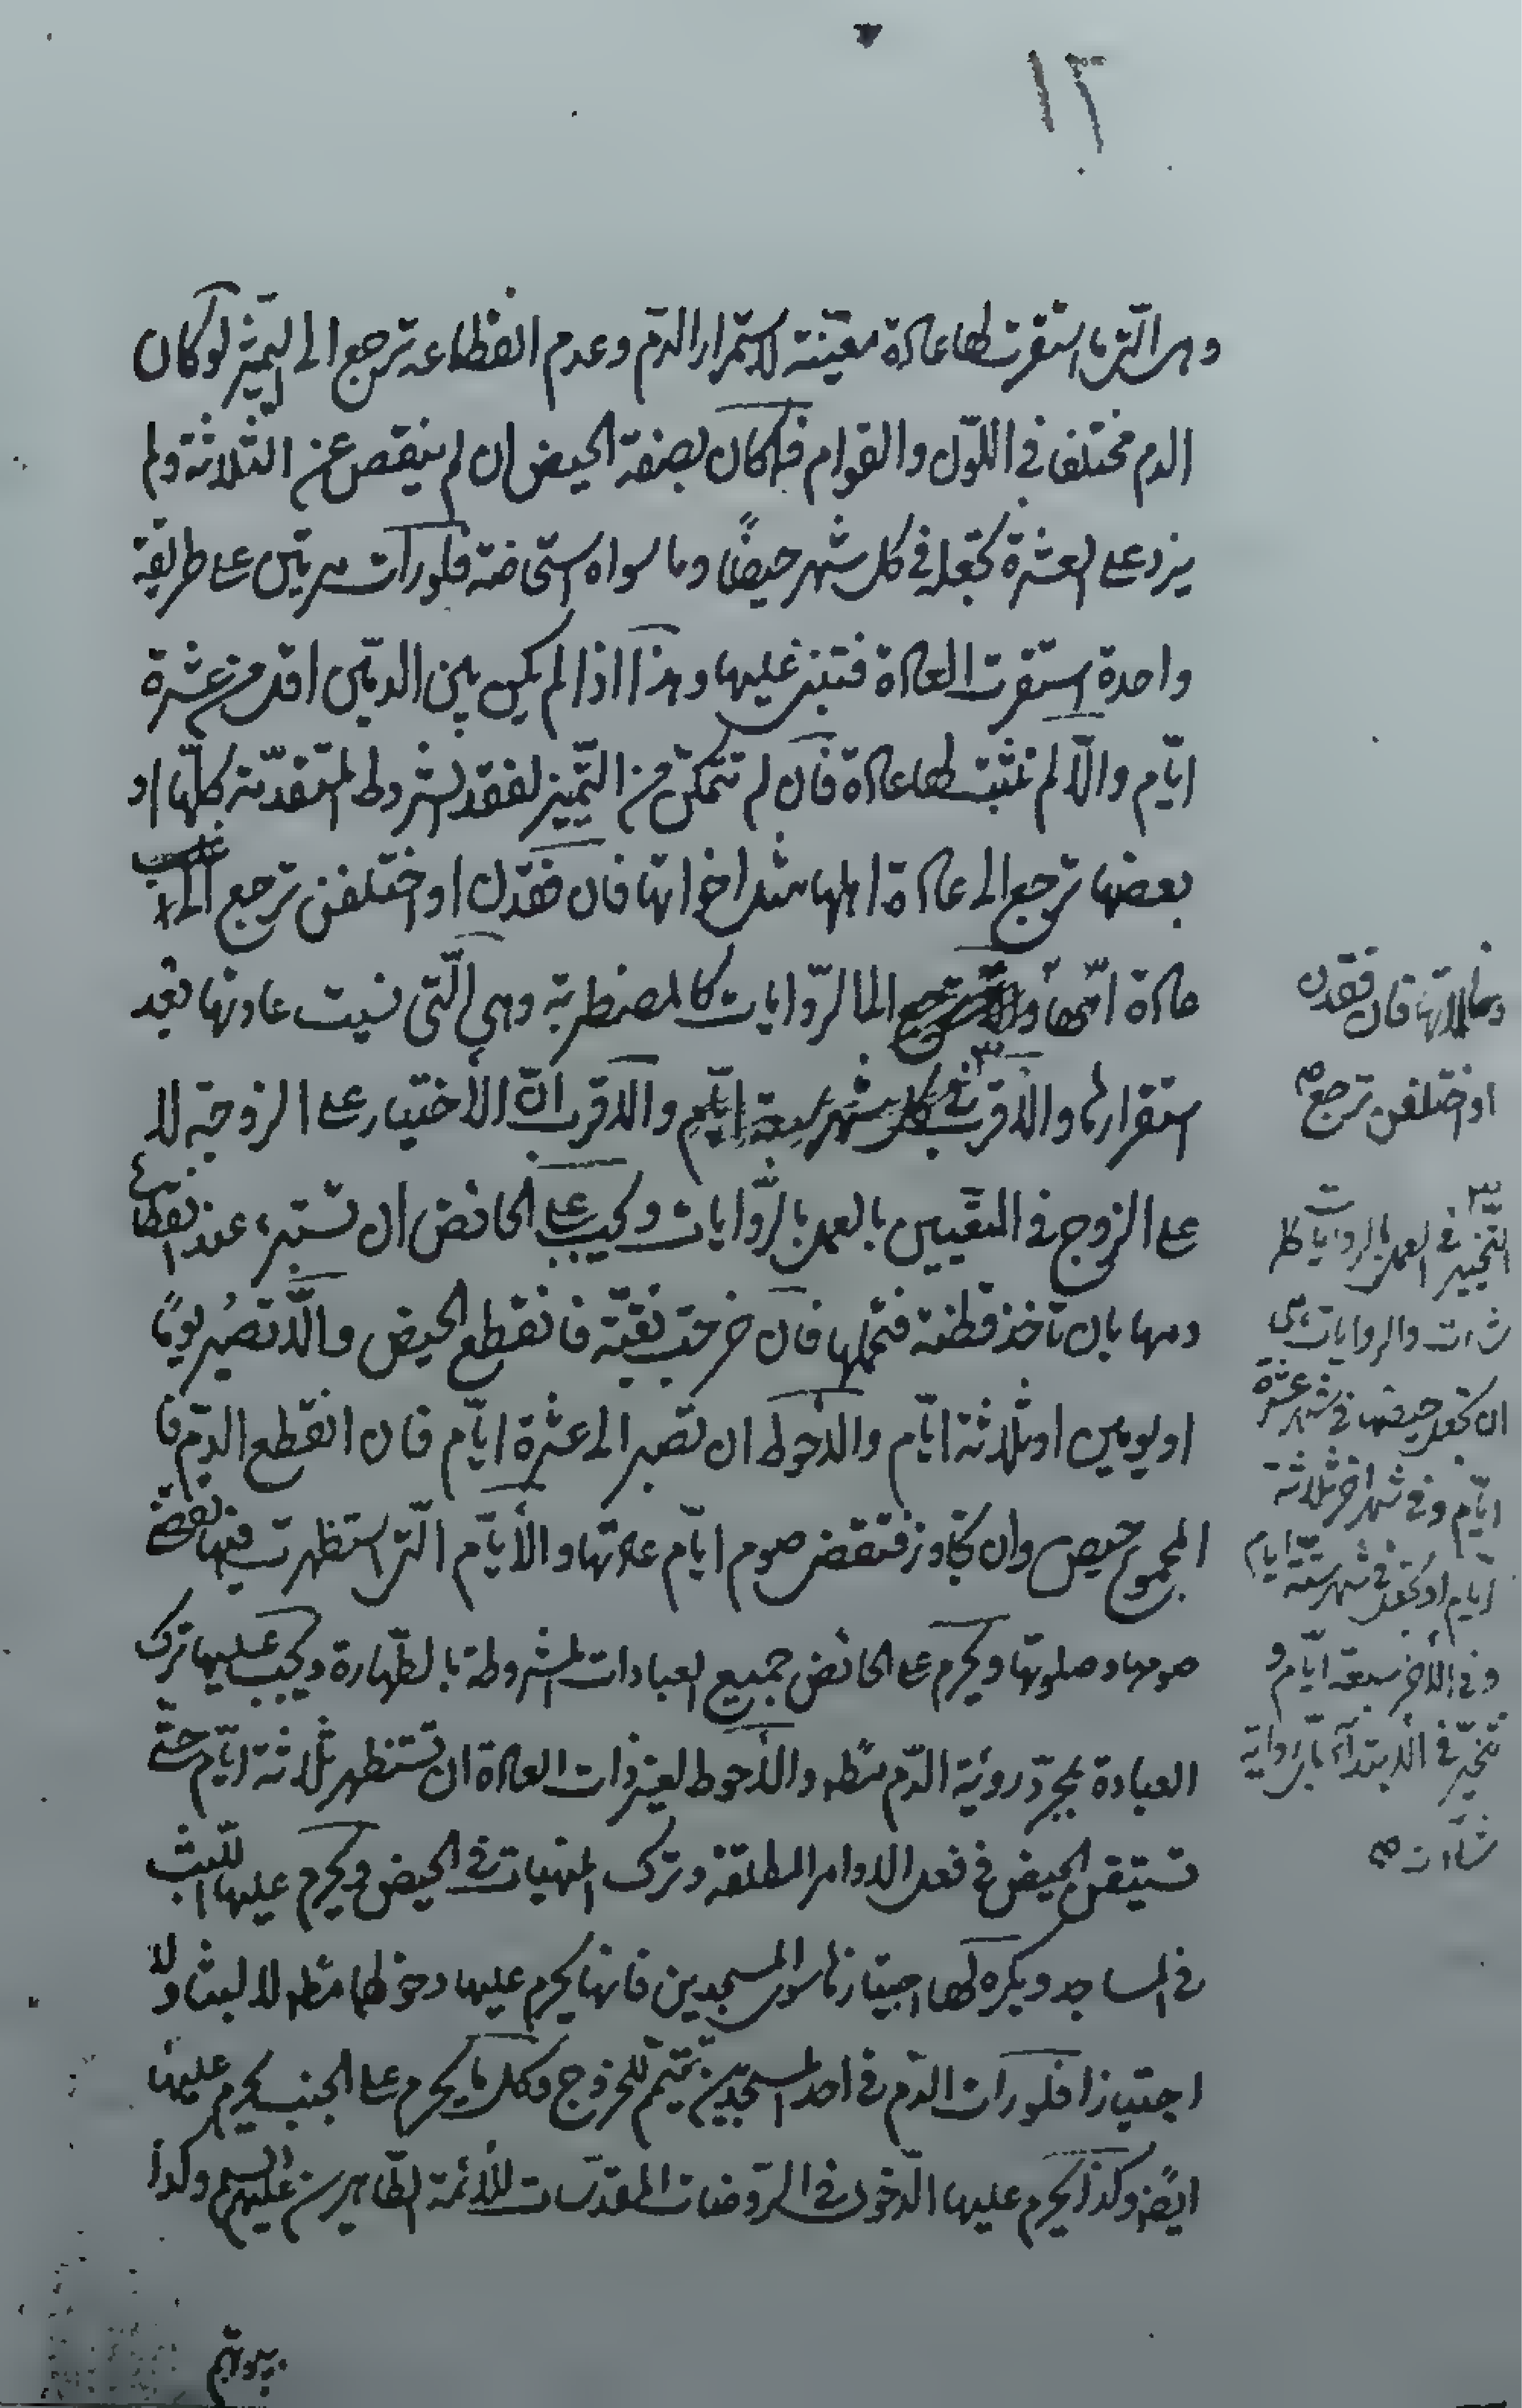 ١٢
وهى الّتى ما استقرت لها عادة معيّنة لاستمرار الدّم وعدم انقطاعه ترجع الى التميّز لو كان
الدم مختلفا فى اللّون والقوام فما كان بصفة الحيض ان لم ينقص عن الثلاثة ولم
يزد على العشرة تجعله فى كل شهر حيضًا وما سواه استحاضة فلو رات مرتين على طريقة
واحدة استقرت العادة فتبنى عليها وهذا اذا لم يكن بين الدمين اقل من عشرة
ايّام والّا لم تثبت لها عادة فان لم تتمكّن من التّمييز لفقد الشروط المتقدّمة كلّها او
بعضها ترجع الى عادة اهلها مثل اخواتها فان فقدن او اختلفن ترجع الى
عادة الى الرّوايات كالمضطربة وهى الّتى نسيت عادتها بعد
استقرارها والاقرب فى كل شهر سبعة ايّام والاقرب انّ الأختيار على الزوجة لا
على الزوج فى التعيين بالعمل بالرّوايات ويجب على الحائض ان تستبرء عند انقطاع
دمها بان تاخذ قطنة فتحملها فان خرجت نقيّة فانقطع الحيض والّا تصبر يومًا
او يومين او ثلاثة ايّام والاحوط ان تصبر الى عشرة ايّام فان انقطع الدّم فا
المجموع حيض وان تجاوز فتقضى صوم ايّام عادتها والأيّام الّتى استظهرت فيها تقضى
صومها وصلوتها ويحرم على الحائض جميع العبادات المشروطة بالطّهارة ويجب عليها ترك
العبادة بمجرّد رؤية الدّم مط والأحوط لغير ذات العادة ان تستظهر ثلاثة ايّام حتّى
تستيقن الحيض فى فعل الاوامر المطلقة وترك المنهيات فى الحيض ويحرم عليها اللّبث
فى المساجد ويكره لها اجتيازها سوى المسجدين فانها يحرم عليها دخولها مط لا لبثا ولا
اجتيازا فلو رات الدّم فى احد المسجدين تتيمّم للخروج وكل ما يحرم على الجنب يحرم عليها
ايضا وكذا يحرم عليها الدّخول فى الرّوضات المقدّسات للأئمة الطّاهرين عليهم السلم وكذا
فان فقدن
او اختلفن ترجع
التّخيير فى العمل بالروايات كلما
شاءت والروايات هى
ان تجعل حيضها فى شهر عشرة
ايّام وفى شهر اخر ثلاثة
ايّام او تجعل فى شهر ستّة ايام
وفى الأخر سبعة ايّام و
تتخيّر فى الابتداء باىّ رواية
شاءت
بيوتهم